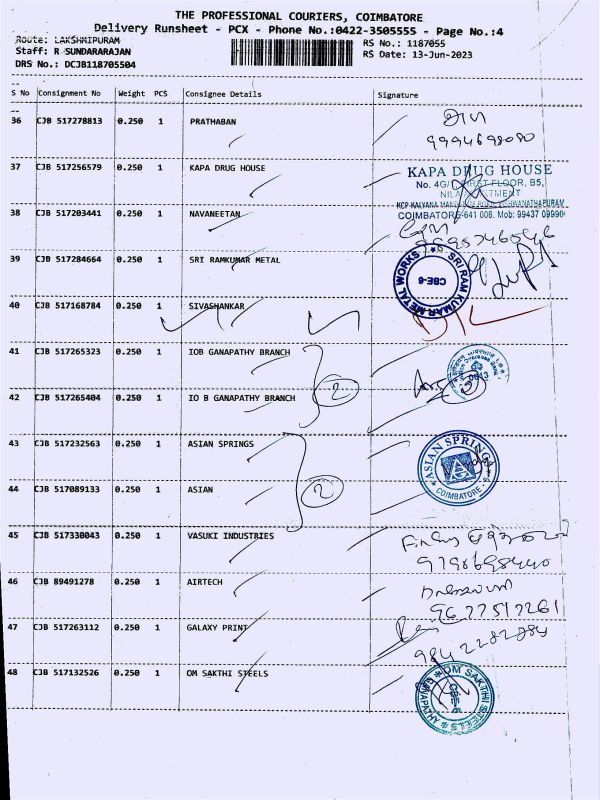 THE PROFESSIONAL COURIERS, COIMBATORE
Delivery Runsheet - PCX - Phone No.:0422-3505555 - Page No.:4
Route: LAKSHMIPURAM
RS No.: 1187055
Staff: R SUNDARARAJAN
RS Date: 13-Jun-2023
DRS No.: DCJB118705504
S No Consignment No Weight PCS Consignee Details Signature
36 CJB 517278813 0.250 1 PRATHABAN
9994698080
37 CJB 517256579 0.250 1 KAPA DRUG HOUSE
KAPA DRUG HOUSE
No. 4G/ FIRST FLOOR, B5,
COIMBATORE-641 006. Mob: 99437 09990
38 CJB 517203441 0.250 1 NAVANEETAN
39 CJB 517284664 0.250 1 SRI RAMKUMAR METAL
SRI RAM KUMAR METAL WORKS
CBE-6
40 CJB 517168784 0.250 1 SIVASHANKAR
41 CJB 517265323 0.250 1 IOB GANAPATHY BRANCH
2
42 CJB 517265404 0.250 1 IO B GANAPATHY BRANCH
43 CJB 517232563 0.250 1 ASIAN SPRINGS
ASIAN SPRINGS
COIMBATORE - 6
2
44 CJB 517089133 0.250 1 ASIAN
45 CJB 517330043 0.250 1 VASUKI INDUSTRIES
46 CJB 89491278 0.250 1 AIRTECH
9677517261
47 CJB 517263112 0.250 1 GALAXY PRINT
9842282784
48 CJB 517132526 0.250 1 OM SAKTHI STEELS
OM SAKTHI STEELS
GANAPATHY
CBE-6